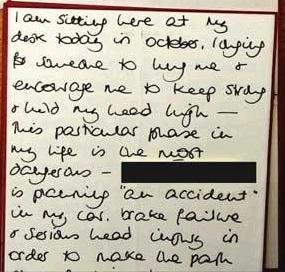 I am sitting here at my
desk today in october, longing
for someone to hug me &
encourage me to keep strong
& hold my head high —
This particular phase in
my life is the most
dangerous –
is planning "an accident"
in my car. brake failure
& serious head injury in
order to make the path